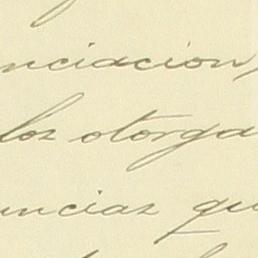 nciacion,
los otorga
uncias qu